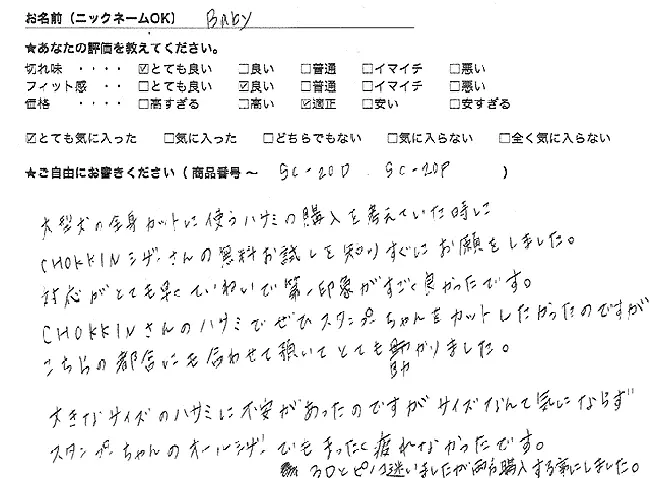 お名前(ニックネームOK) BABY
★あなたの評価を教えてください。
切れ味 ・・・・ ☑とても良い □良い □普通 □イマイチ □悪い
フィット感 ・・ □とても良い ☑良い □普通 □イマイチ □悪い
価格 ・・・・ □高すぎる □高い ☑適正 □安い □安すぎる
☑とても気に入った □気に入った □どちらでもない □気に入らない □全く気に入らない
★ご自由にお書きください(商品番号~ SC-20D . SC-20P )
大型犬の全身カットに使うハサミの購入を考えていた時に
CHOKKINシザーさんの無料お試しを知りすぐにお願をしました。
対応がとても早くていねいで第一印象がすごく良かったです。
CHOKKINさんのハサミでぜひスタンプーちゃんをカットしたかったのですが
こちらの都合にも合わせて頂いてとても助かりました。
大きなサイズのハサミに不安があったのですがサイズなんて気にならず
スタンプーちゃんのオールシザーでもまったく疲れなかったです。
迷いましたが両方購入する事にしました。